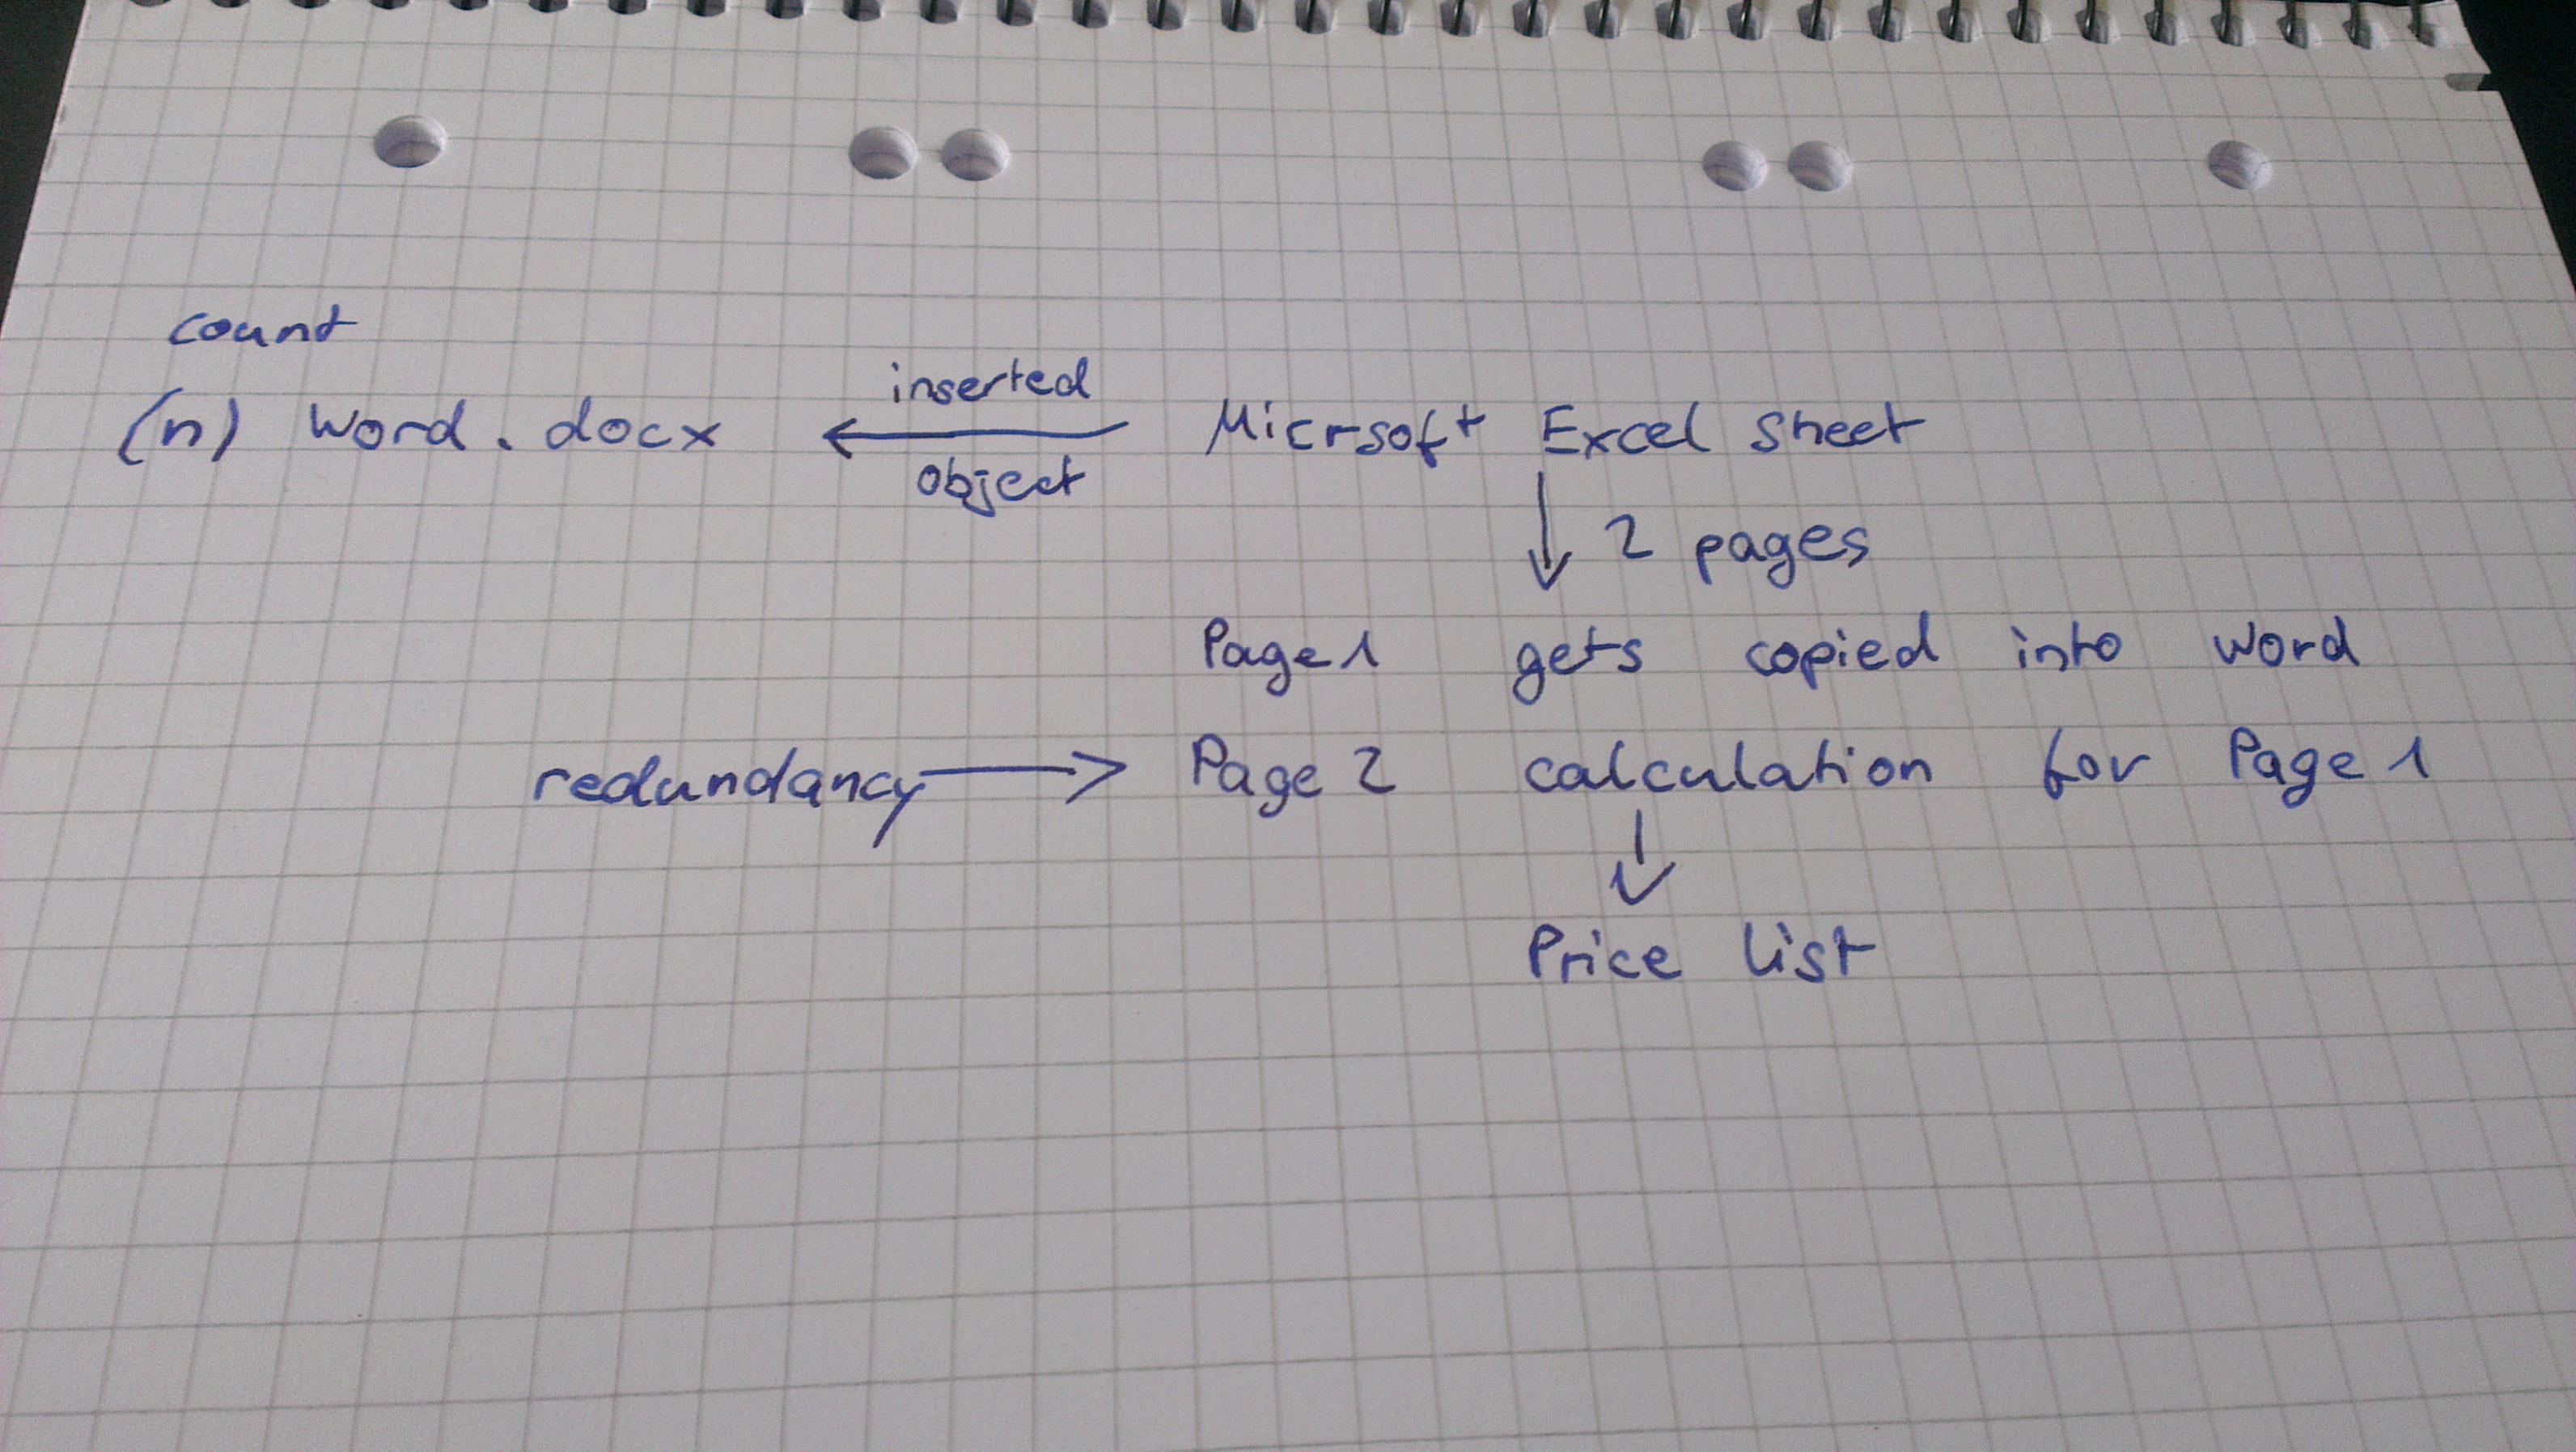 count
inserted
(n) Word.docx ← Micrsoft Excel Sheet
object
↓ 2 pages
Page 1 gets copied into Word
redundancy → Page 2 calculation for Page 1
↓
Price list